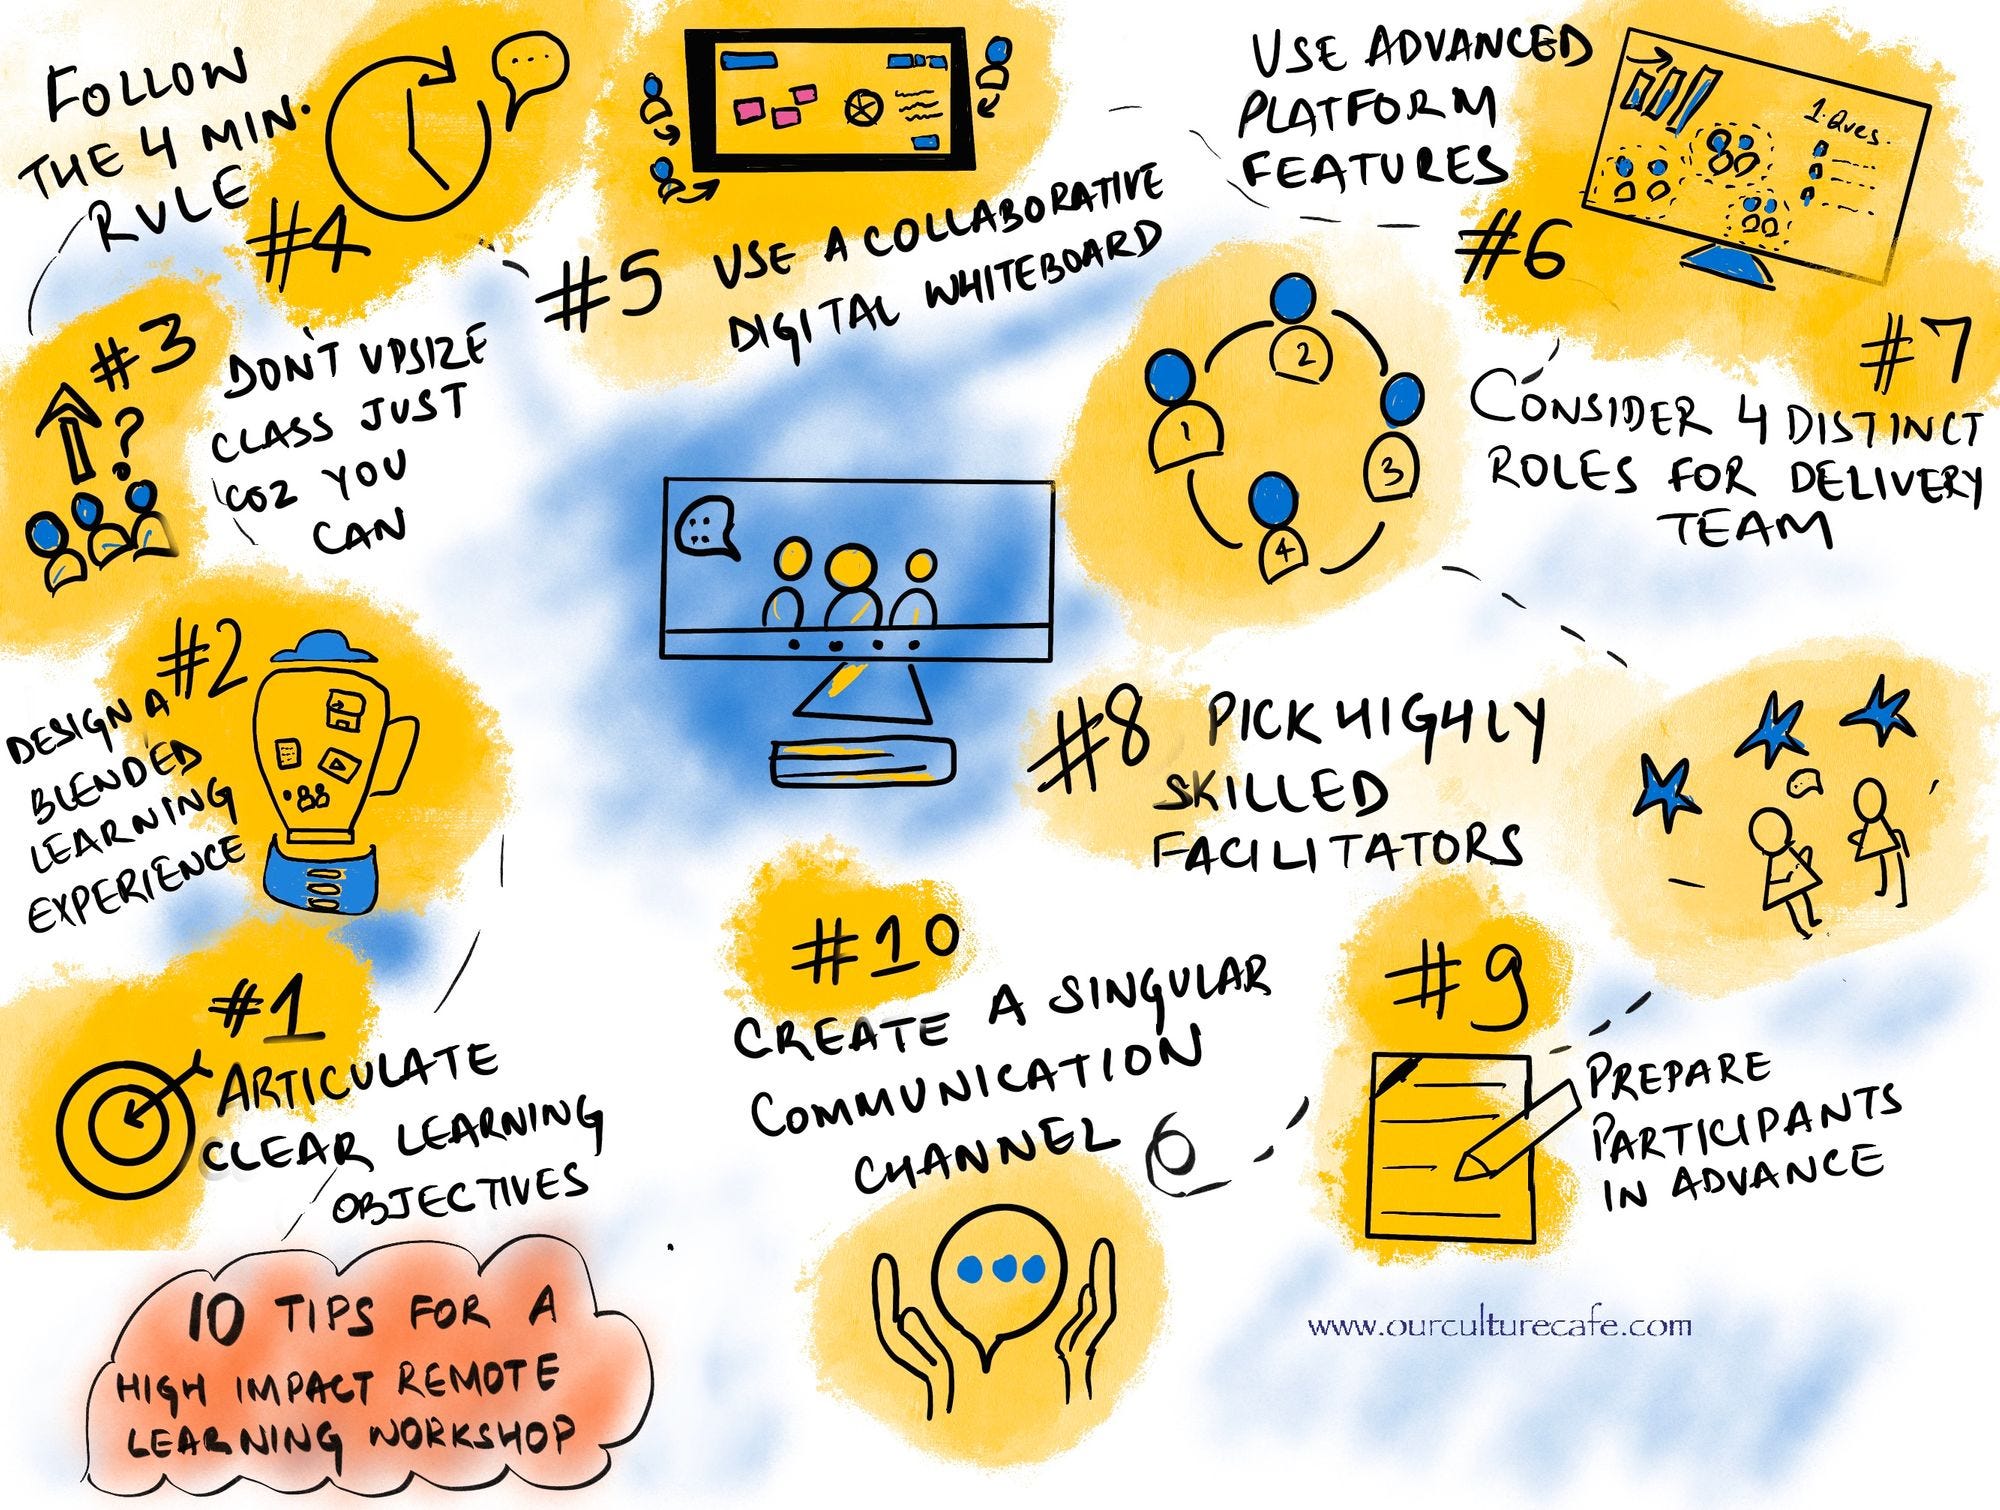 10 TIPS FOR A
HIGH IMPACT REMOTE
LEARNING WORKSHOP
#1
ARTICULATE
CLEAR LEARNING
OBJECTIVES
#2
DESIGN A
BLENDED
LEARNING
EXPERIENCE
#3
DON'T UPSIZE
CLASS JUST
COZ YOU
CAN
FOLLOW
THE 4 MIN.
RULE
#4
#5
USE A COLLABORATIVE
DIGITAL WHITEBOARD
USE ADVANCED
PLATFORM
FEATURES
#6
1. Ques.
#7
CONSIDER 4 DISTINCT
ROLES FOR DELIVERY
TEAM
1
2
3
4
#8 PICK HIGHLY
SKILLED
FACILITATORS
#9
PREPARE
PARTICIPANTS
IN ADVANCE
#10
CREATE A SINGULAR
COMMUNICATION
CHANNEL
www.ourculturecafe.com